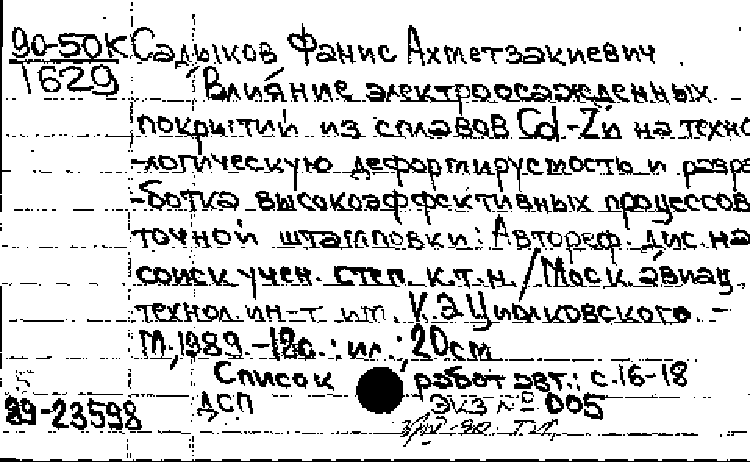 90-50К Садыков Фанис Ахметзакиевич
1629 Влияние электроосажденных
покрытий из сплавов Cd-Zn на техно
-логическую деформируемость и разра
-ботка высокоэффективных процессов
точной штамповки: Автореф. дис. на
соиск учен. степ к.т.н. / Моск авиац.
технол ин-т им. К.Э Циолковского. -
М, 1989. -18с.: ил.; 20см
Список работ авт.: с.16-18
89-23598 ДСП Экз № 005